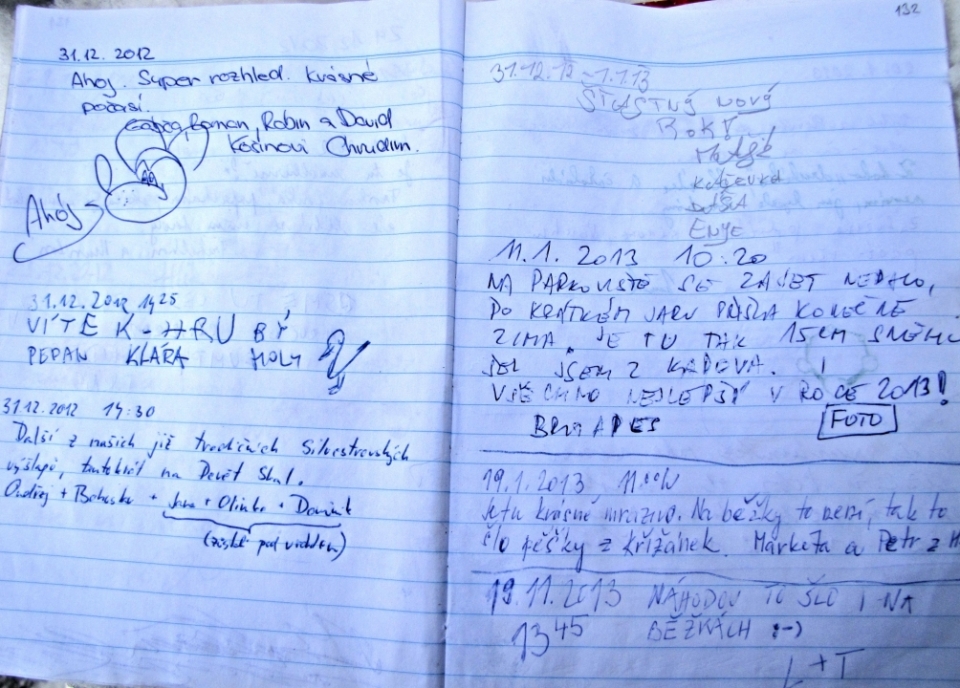 31.12. 2012
Ahoj. Super rozhled. Krásné
počasí.
Roman, Robin a David
Kosinovi Chrudim.
Ahój
31.12.2012 14 25
VÍTEK - HRU BÝ
PEPAN KLÁRA HOLÝ
31.12.2012 14:30
Další z našich již tradičních Silvestrovských
výšlapů, tentokrát na Devět Skal.
Ondřej + + Jana + Olinka + Dominik
132
31.12.12 - 1.1.13
ŠŤASTNÝ NOVÝ
ROK!
DÁŠA
ENYE
11.1. 2013 10:20
NA PARKOVIŠTĚ SE ZAJET NEDALO,
PO KRÁTKÉM JARU PŘIŠLA KONEČNĚ
ZIMA. JE TU TAK 15CM SNĚHU
JEL JSEM Z KADOVA.
VŠECHNO NEJLEPŠÍ V ROCE 2013!
FOTO
19.1.2013
Je tu krásně mrazivo. Na běžky to není, tak to
šlo pěšky z Křižánek. Markéta a Petr z
19.11.2013 NÁHODOU TO ŠLO I NA
13 45 BĚŽKÁCH :-)
L+T